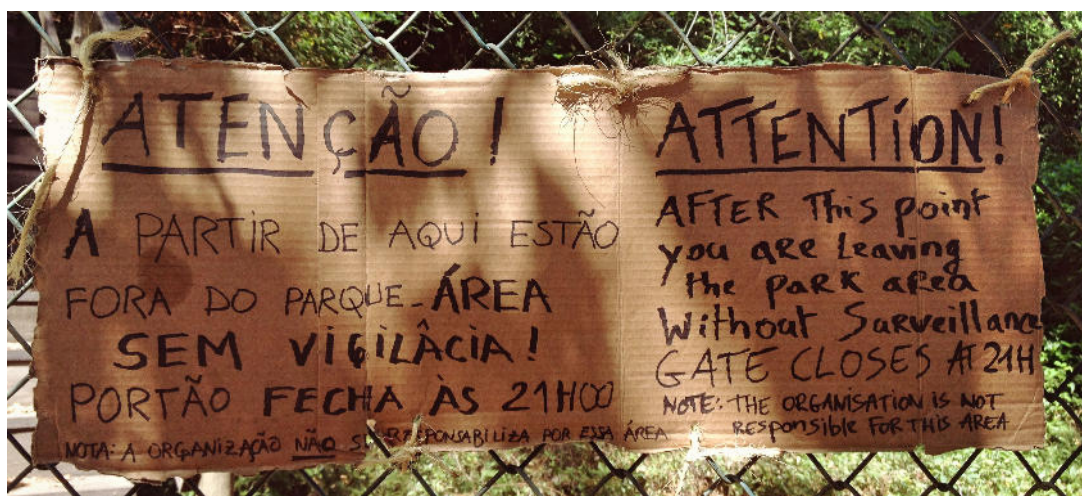 ATENÇÃO!
A PARTIR DE AQUI ESTÃO
FORA DO PARQUE-ÁREA
SEM VIGILÂCIA!
PORTÃO FECHA ÀS 21H00
NOTA: A ORGANIZAÇÃO NÃO SE RESPONSABILIZA POR ESSA ÁREA
ATTENTION!
AFTER This point
you are Leaving
the park area
Without Surveillance
GATE CLOSES AT 21H
NOTE: THE ORGANISATION IS NOT
Responsible FOR THIS AREA